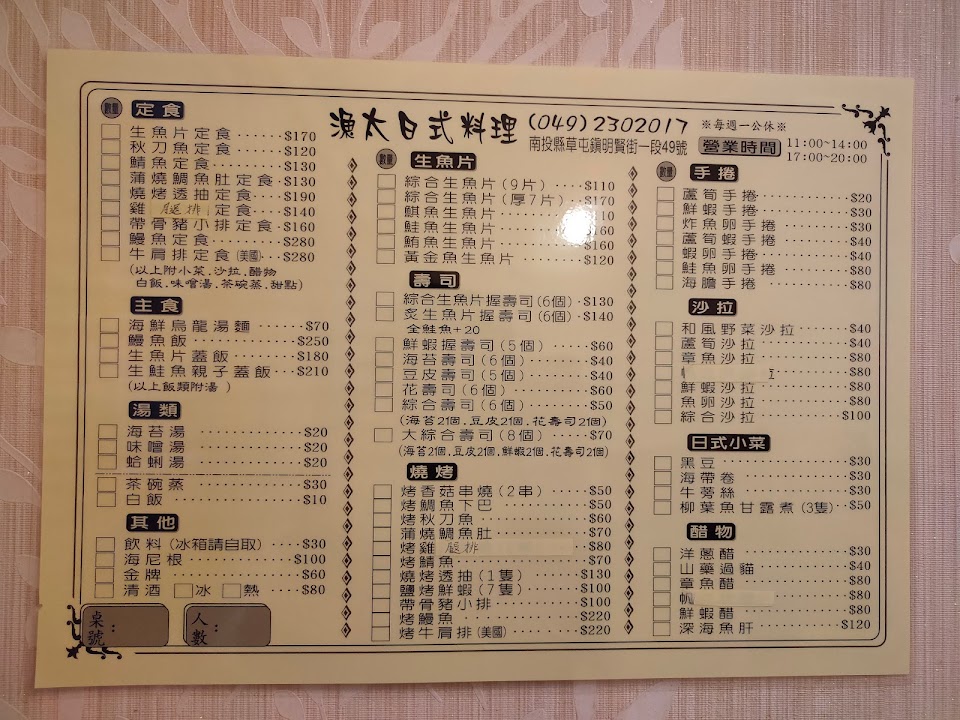 漁太日式料理 (049)2302017 ※每週一公休※
南投縣草屯鎮明賢街一段49號
營業時間 11:00~14:00
17:00~20:00
數量 定食
生魚片定食······$170
秋刀魚定食······$120
鯖魚定食······$130
蒲燒鯛魚肚定食·$130
燒烤透抽定食····$190
雞腿排定食····$140
帶骨豬小排定食·$160
鰻魚定食······$280
牛肩排定食(美國)··$280
(以上附小菜.沙拉.醋物
白飯.味噌湯.茶碗蒸.甜點)
主食
海鮮烏龍湯麵······$70
鰻魚飯······$250
生魚片蓋飯······$180
生鮭魚親子蓋飯···$210
(以上飯類附湯)
湯類
海苔湯······$20
味噌湯······$20
蛤蜊湯······$20
茶碗蒸······$30
白飯······$10
其他
飲料(冰箱請自取)····$30
海尼根······$100
金牌······$60
清酒 冰 熱···$80
桌號:
人數:
數量 生魚片
綜合生魚片(9片)····$110
綜合生魚片(厚7片)····$170
旗魚生魚片 10
鮭魚生魚片 160
鮪魚生魚片 $160
黃金魚生魚片······$120
壽司
綜合生魚片握壽司(6個)·$130
炙生魚片握壽司(6個)·$140
全鮭魚+20
鮮蝦握壽司(5個)······$60
海苔壽司(6個)······$40
豆皮壽司(5個)······$40
花壽司(6個)······$60
綜合壽司(6個)······$50
(海苔2個.豆皮2個.花壽司2個)
大綜合壽司(8個)······$70
(海苔2個.豆皮2個.鮮蝦2個.花壽司2個)
燒烤
烤香菇串燒(2串)·····$50
烤鯛魚下巴······$50
烤秋刀魚······$60
蒲燒鯛魚肚······$70
烤雞腿排 ··$80
烤鯖魚······$70
燒烤透抽(1隻)······$130
鹽烤鮮蝦(7隻)······$100
帶骨豬小排······$100
烤鰻魚······$220
烤牛肩排(美國)······$220
數量 手捲
蘆筍手捲······$20
鮮蝦手捲······$30
炸魚卵手捲······$30
蘆筍蝦手捲······$40
蝦卵手捲······$40
鮭魚卵手捲······$80
海膽手捲······$80
沙拉
和風野菜沙拉······$40
蘆筍沙拉······$40
章魚沙拉······$80
$80
鮮蝦沙拉······$80
魚卵沙拉······$80
綜合沙拉······$100
日式小菜
黑豆······$30
海帶卷······$30
牛蒡絲······$30
柳葉魚甘露煮(3隻)··$50
醋物
洋蔥醋······$30
山藥過貓······$40
章魚醋······$80
帆 $80
鮮蝦醋······$80
深海魚肝······$120